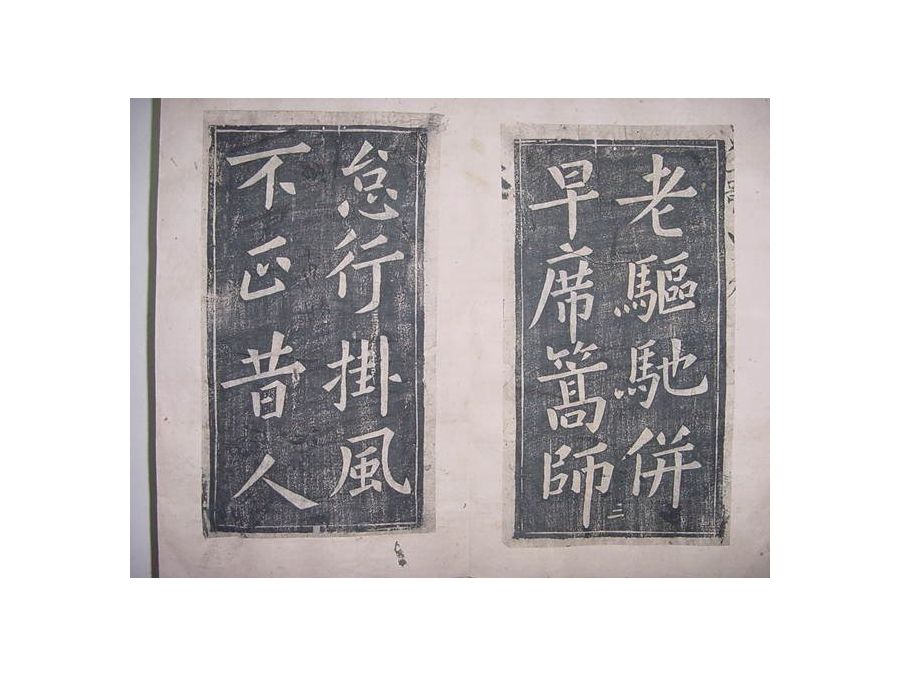 老驅馳併
早席篙師三
怠行掛風
不正昔人